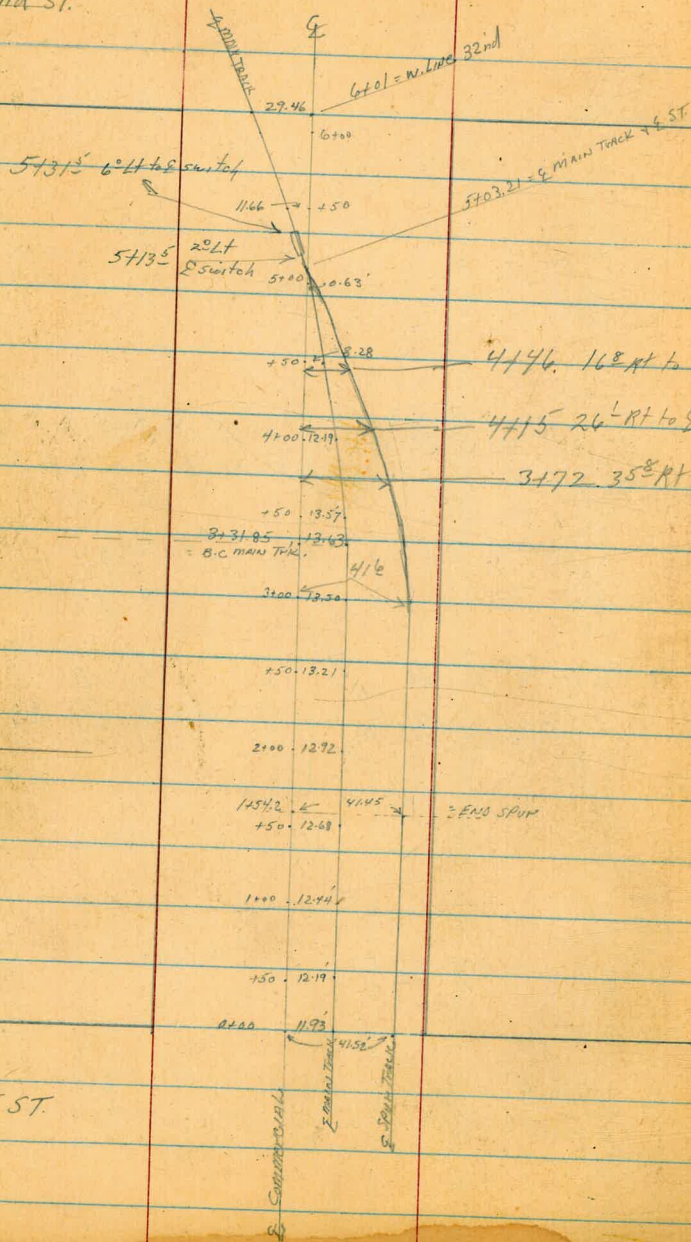 ST.
℄ MAIN TRACK
℄
6+01 = W. LINE 32nd
29.46
6+00
5+03.21 = ℄ MAIN TRACK & ℄ ST.
5+31⁵ 6⁰ Lt to ℄ switch
11.66 +50
5+13⁵ 2⁰ Lt
℄ switch
5+00 0.63'
+50 8.28
4+46. 16⁸ Rt to
4+00 12.19
4+15 26¹ Rt to ℄
3+72. 35⁸ Rt
+50 13.57
3+31.85 13.63
= B.C MAIN TRK.
41⁶
3+00 13.50
+50 13.21
2+00 12.92
1+54.2 41.45 = END SPUR
+50 12.68
1+00 12.44
+50 12.19
0+00 11.93'
41.52'
℄ COMMERCIAL
℄ MAIN TRACK
℄ SPUR TRACK
ST.